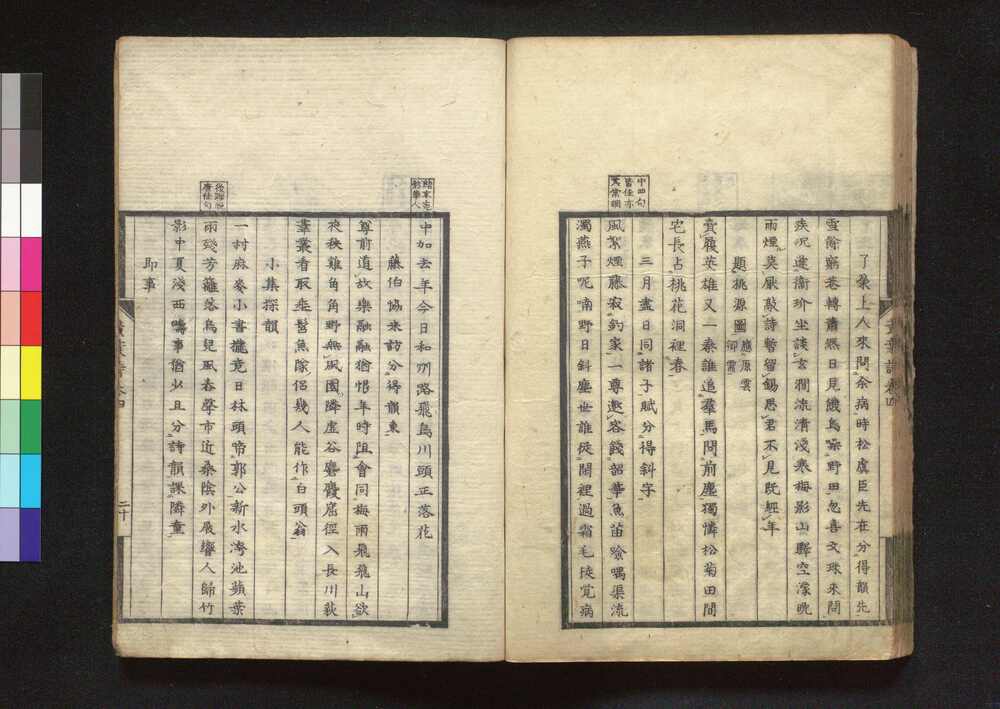 中四句
皆佳亦
了桑上人來問余病時松虞臣先在分得韻先
雪餘窮巷轉蕭然日見饑烏噪野田忽喜文殊來問
疾况逢衞玠坐談玄澗流清淺寒梅影山驛空濛晩
雨煙莫厭敲詩暫留錫思君不見既經年
題桃源圖
賣履英雄又一秦誰追羣馬問前塵獨憐松菊田間
宅長占桃花洞裡春
三月盡日同諸子賦分得斜字
風絮煙藤寂釣家一尊邀客餞韶華魚笛喩喁渠流
濁燕子呢喃野日斜塵世誰從閙裡過霜毛挾覺病
中加去年今日和州路飛鳥川頭正落花
藤伯恊來訪分得韻東
尊前道故樂融融猶恨年時阻會同梅雨飛飛山欲
夜秧雞角角野無風園隣虚谷麏麚窟徑入長川荻
葦叢香取垂髫魚隊侶幾人能作白頭翁
小集探韻
一村麻麥小書攏竟日林頭啼郭公新水灣池蘋葉
雨殘芳籬落鳥兒風舂聲市近桑陰外屐響人歸竹
影中夏淺西疇事猶少且分詩韻課隣童
即事
黄葉詩卷四
二十